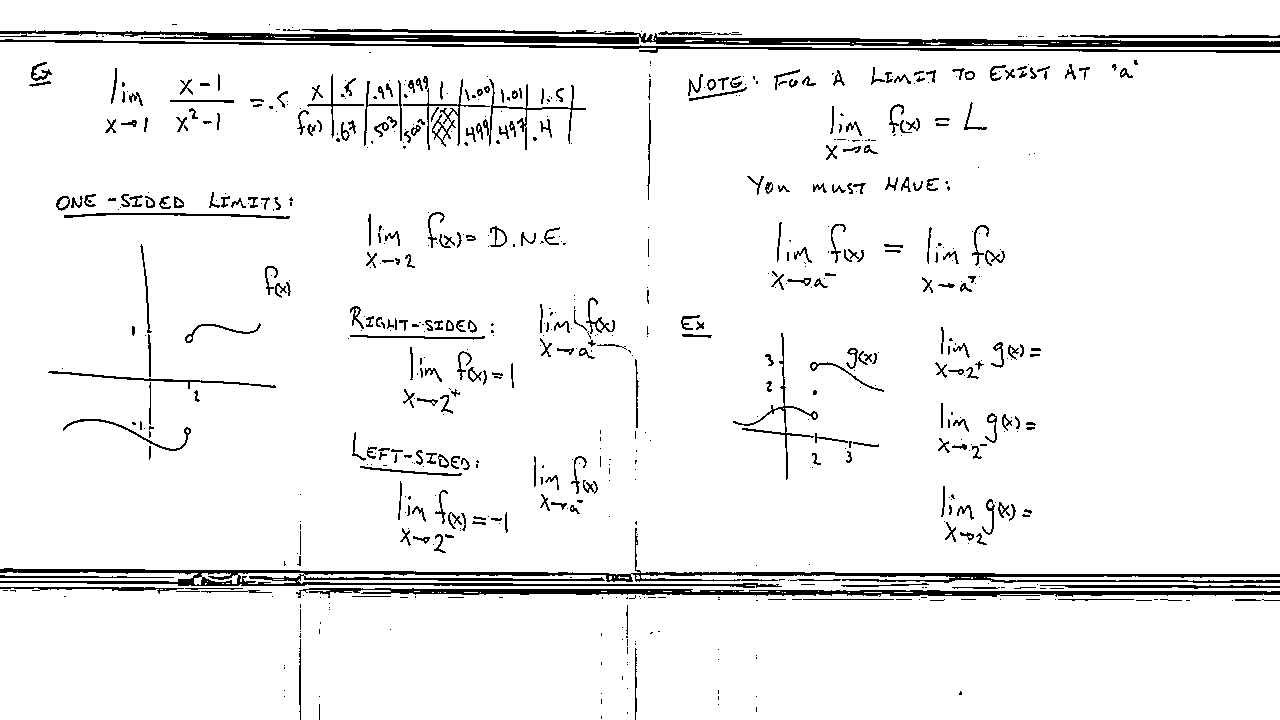 Ex
lim x→1 (x-1)/(x²-1) = .5
x | .5 | .99 | .999 | 1 | 1.001 | 1.01 | 1.5
f(x) | .67 | .503 | .5003 | | .499 | .497 | .4
ONE-SIDED LIMITS:
f(x)
1
2
-1
lim x→2 f(x) = D.N.E.
RIGHT-SIDED: lim x→a⁺ f(x)
lim x→2⁺ f(x) = 1
LEFT-SIDED: lim x→a⁻ f(x)
lim x→2⁻ f(x) = -1
NOTE: FOR A LIMIT TO EXIST AT "a"
lim x→a f(x) = L
YOU MUST HAVE:
lim x→a⁻ f(x) = lim x→a⁺ f(x)
Ex
g(x)
3
2
1
2 3
lim x→2⁺ g(x) =
lim x→2⁻ g(x) =
lim x→2 g(x) =